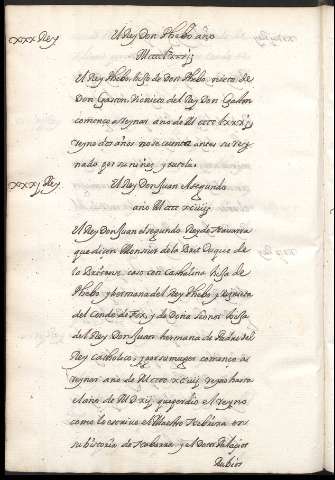 xxx Rey
El Rey Don Phebo año
M cccc lxxxij
El Rey Phebo, hijo de Don Phebo nieto de
Don Gaston, Visnieto del Rey Don Gaston
començo a reynar año de M cccc lxxxij,
reyno dos años no se cuenta antes su rey
nado por su niñez y tutela.
xxxj Rey
El Rey Don Juan el segundo
año M cccc xciiij
El Rey Don Juan el segundo Rey de Navarra
que dizen Monsiur de la Brit Duque de
caso con Cathalina hija de
Phebo y hermana del Rey Phebo y
del Conde de Fox, y de Doña Leonor hija
del Rey Don Juan hermana de Padre del
Rey Catholico, y por su muger començo a
reynar año de M cccc xciiij reyno hasta
el año de M D xij que perdio el reyno
como lo escrive el Maestro Nebrixa en
su historia de Nabarra y el Dotor Palacios
Rubios